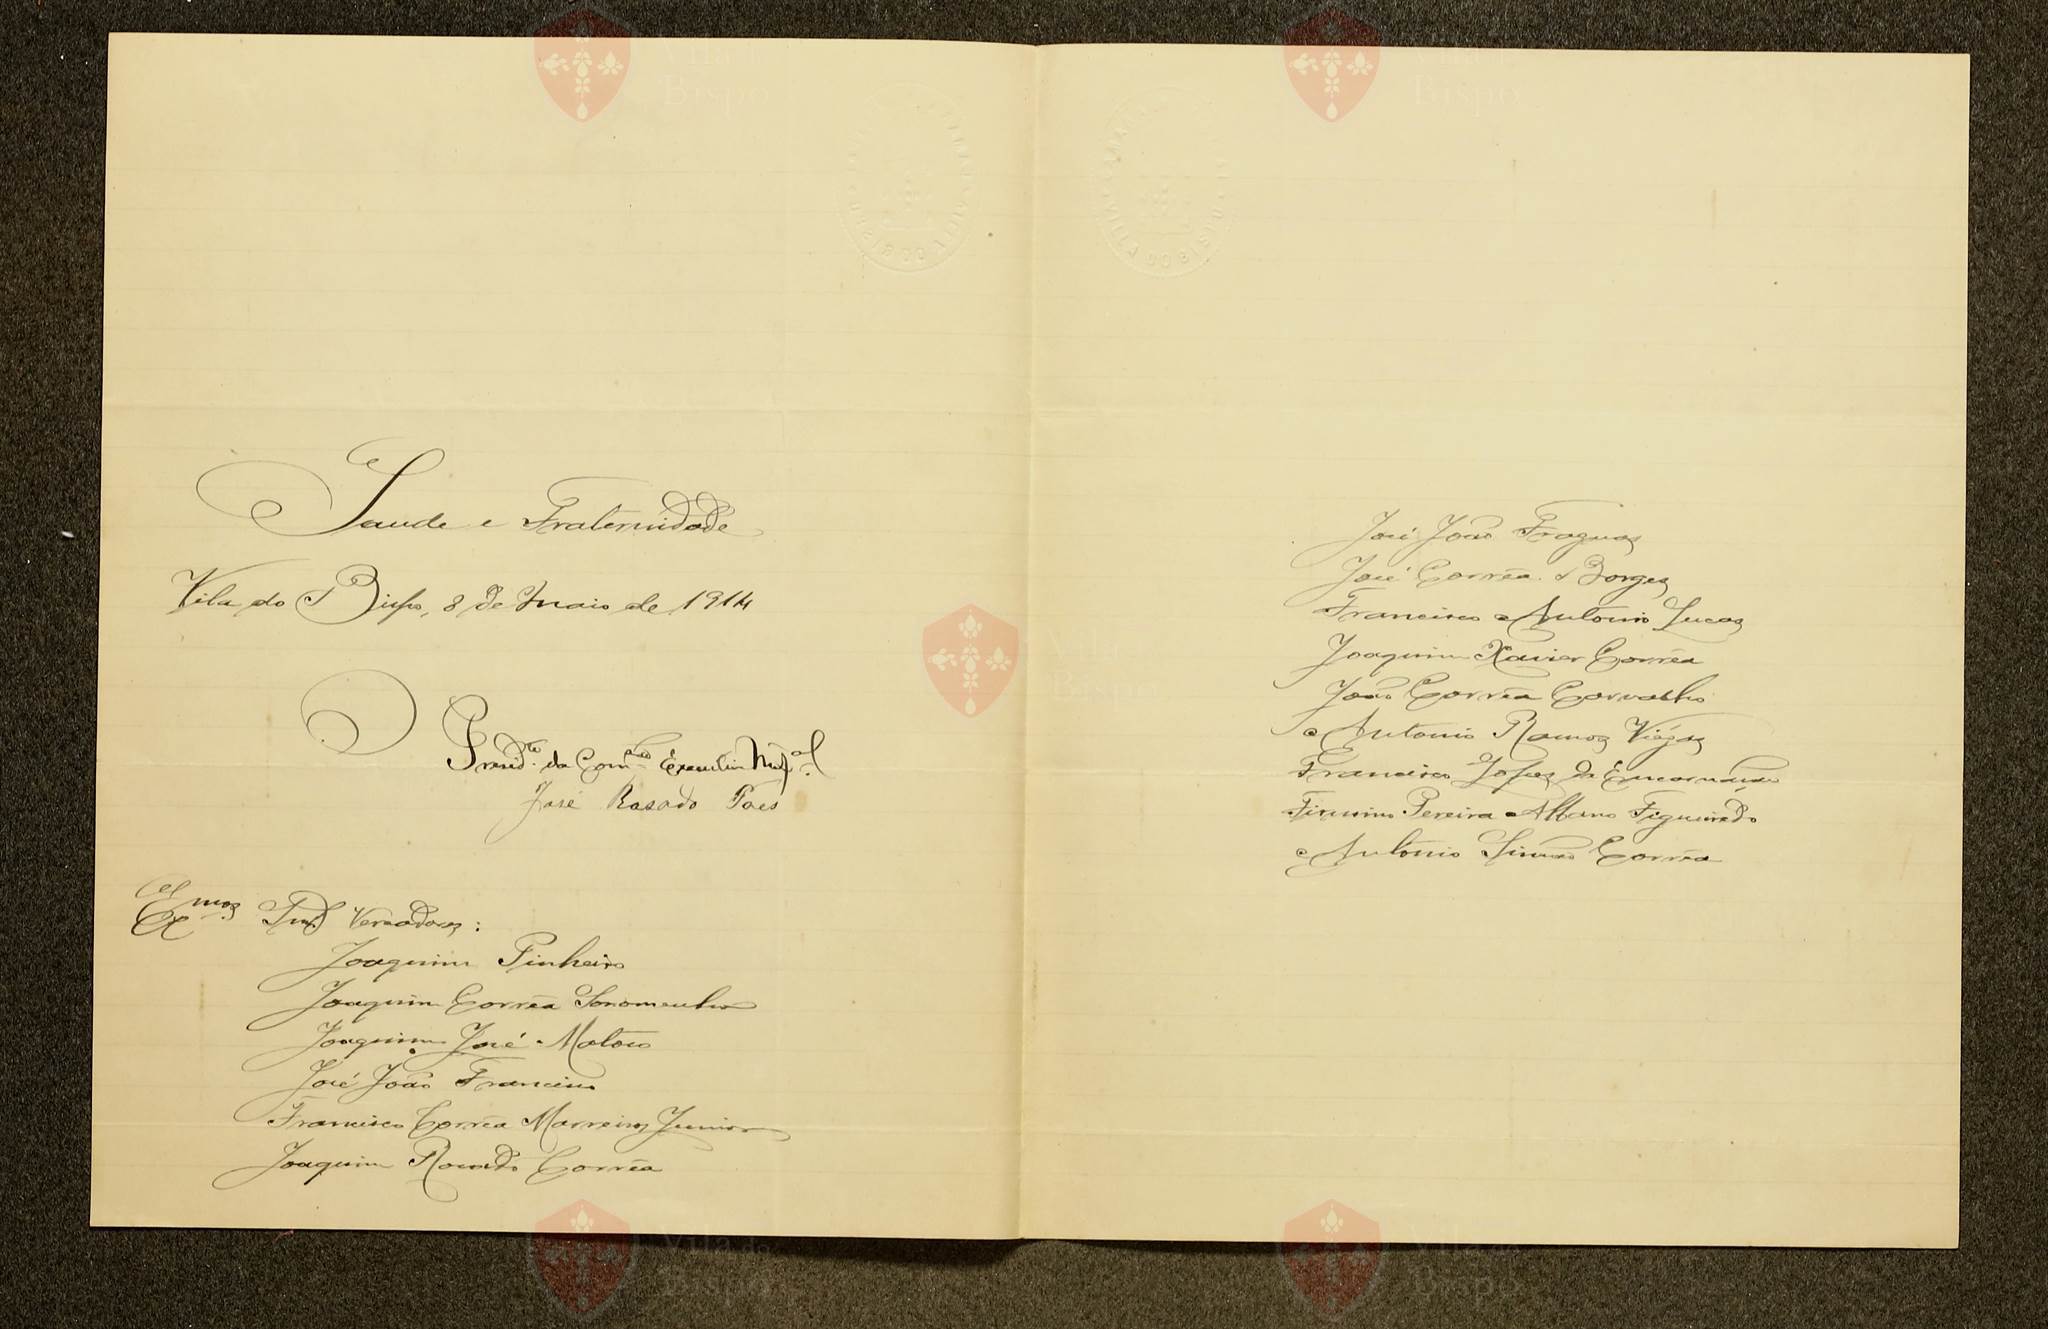 Saude e Fraternidade
Vila do Bispo, 8 de Maio de 1914
O
Presid.te da Com.ão Executiva Mup.al
José Rosado Paes
Ex.mos Snrs Vereadores:
Joaquim Pinheiro
Joaquim Corrêa Sonomenho
Joaquim José Matoso
José João Francisco
Francisco Corrêa Marreiros Junior
Joaquim Rosado Corrêa
CAMARA
VILLA DO BISPO
José João Fraguas
José Corrêa Borges
Francisco Antonio Lucas
Joaquim Xavier Corrêa
João Corrêa Carvalho
Antonio Ramos Viégas
Francisco Lopes da Encarnação
Firmino Pereira Albano Figueiredo
Antonio Simão Corrêa
Vila do
Bispo